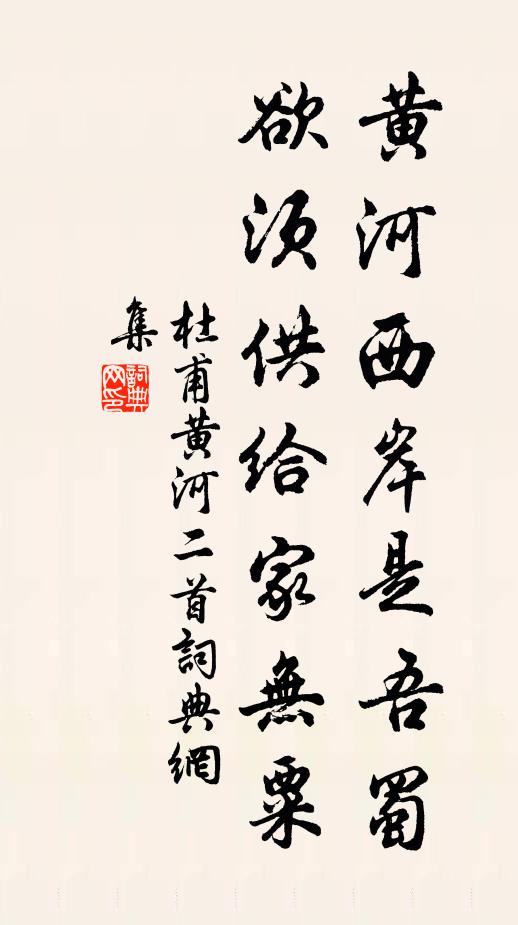 黃河西岸是吾蜀
欲須供給家無粟
杜甫黃河二首詞典網
集
詞典网印